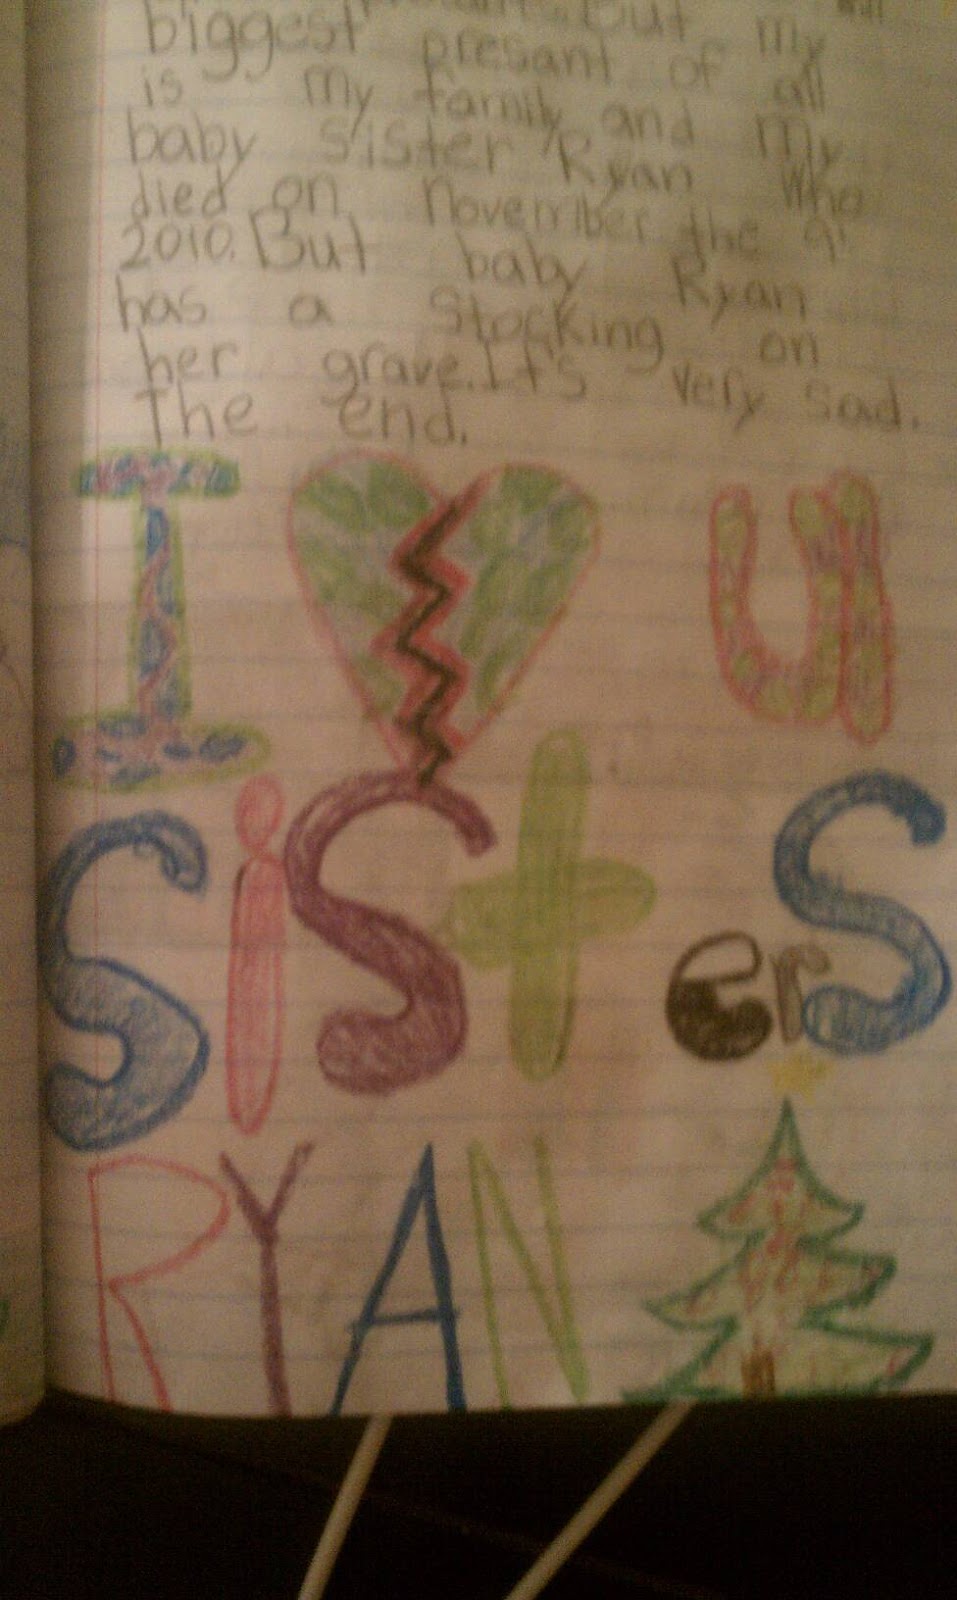 But my
biggest presant of all
is my family and my
baby sister Ryan who
died on november the 9
2010. But baby Ryan
has a stocking on
her grave. It's very sad.
The end.
I u
SiSterS
RYAN